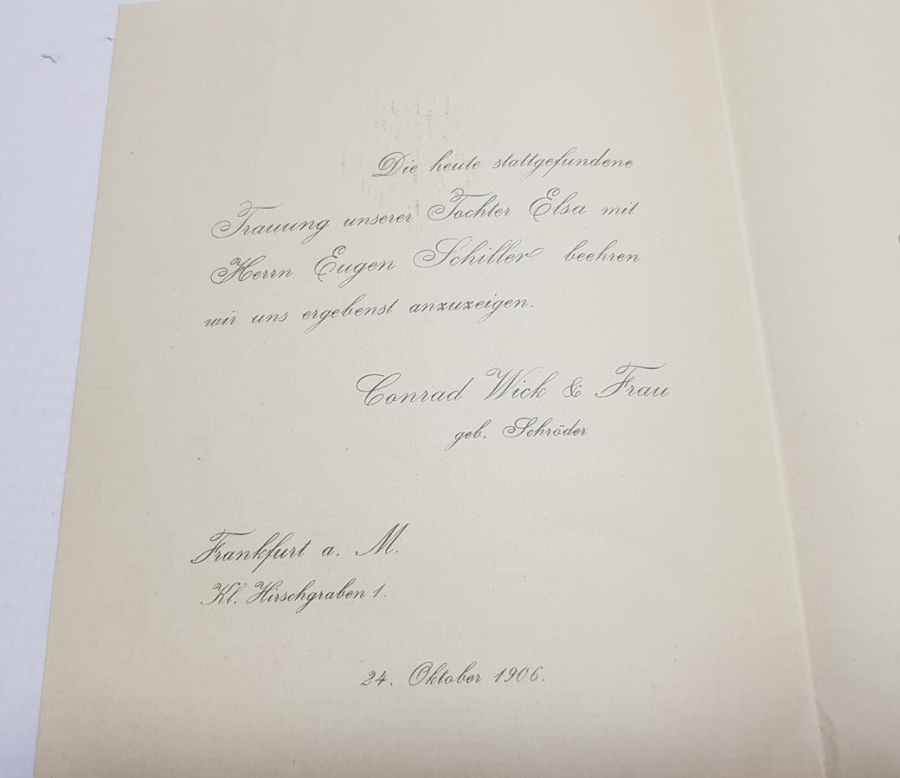 Die heute stattgefundene
Trauung unserer Tochter Elsa mit
Herrn Eugen Schiller beehren
wir uns ergebenst anzuzeigen.
Conrad Wick & Frau
geb. Schröder
Frankfurt a. M.
Kl. Hirschgraben 1.
24. Oktober 1906.